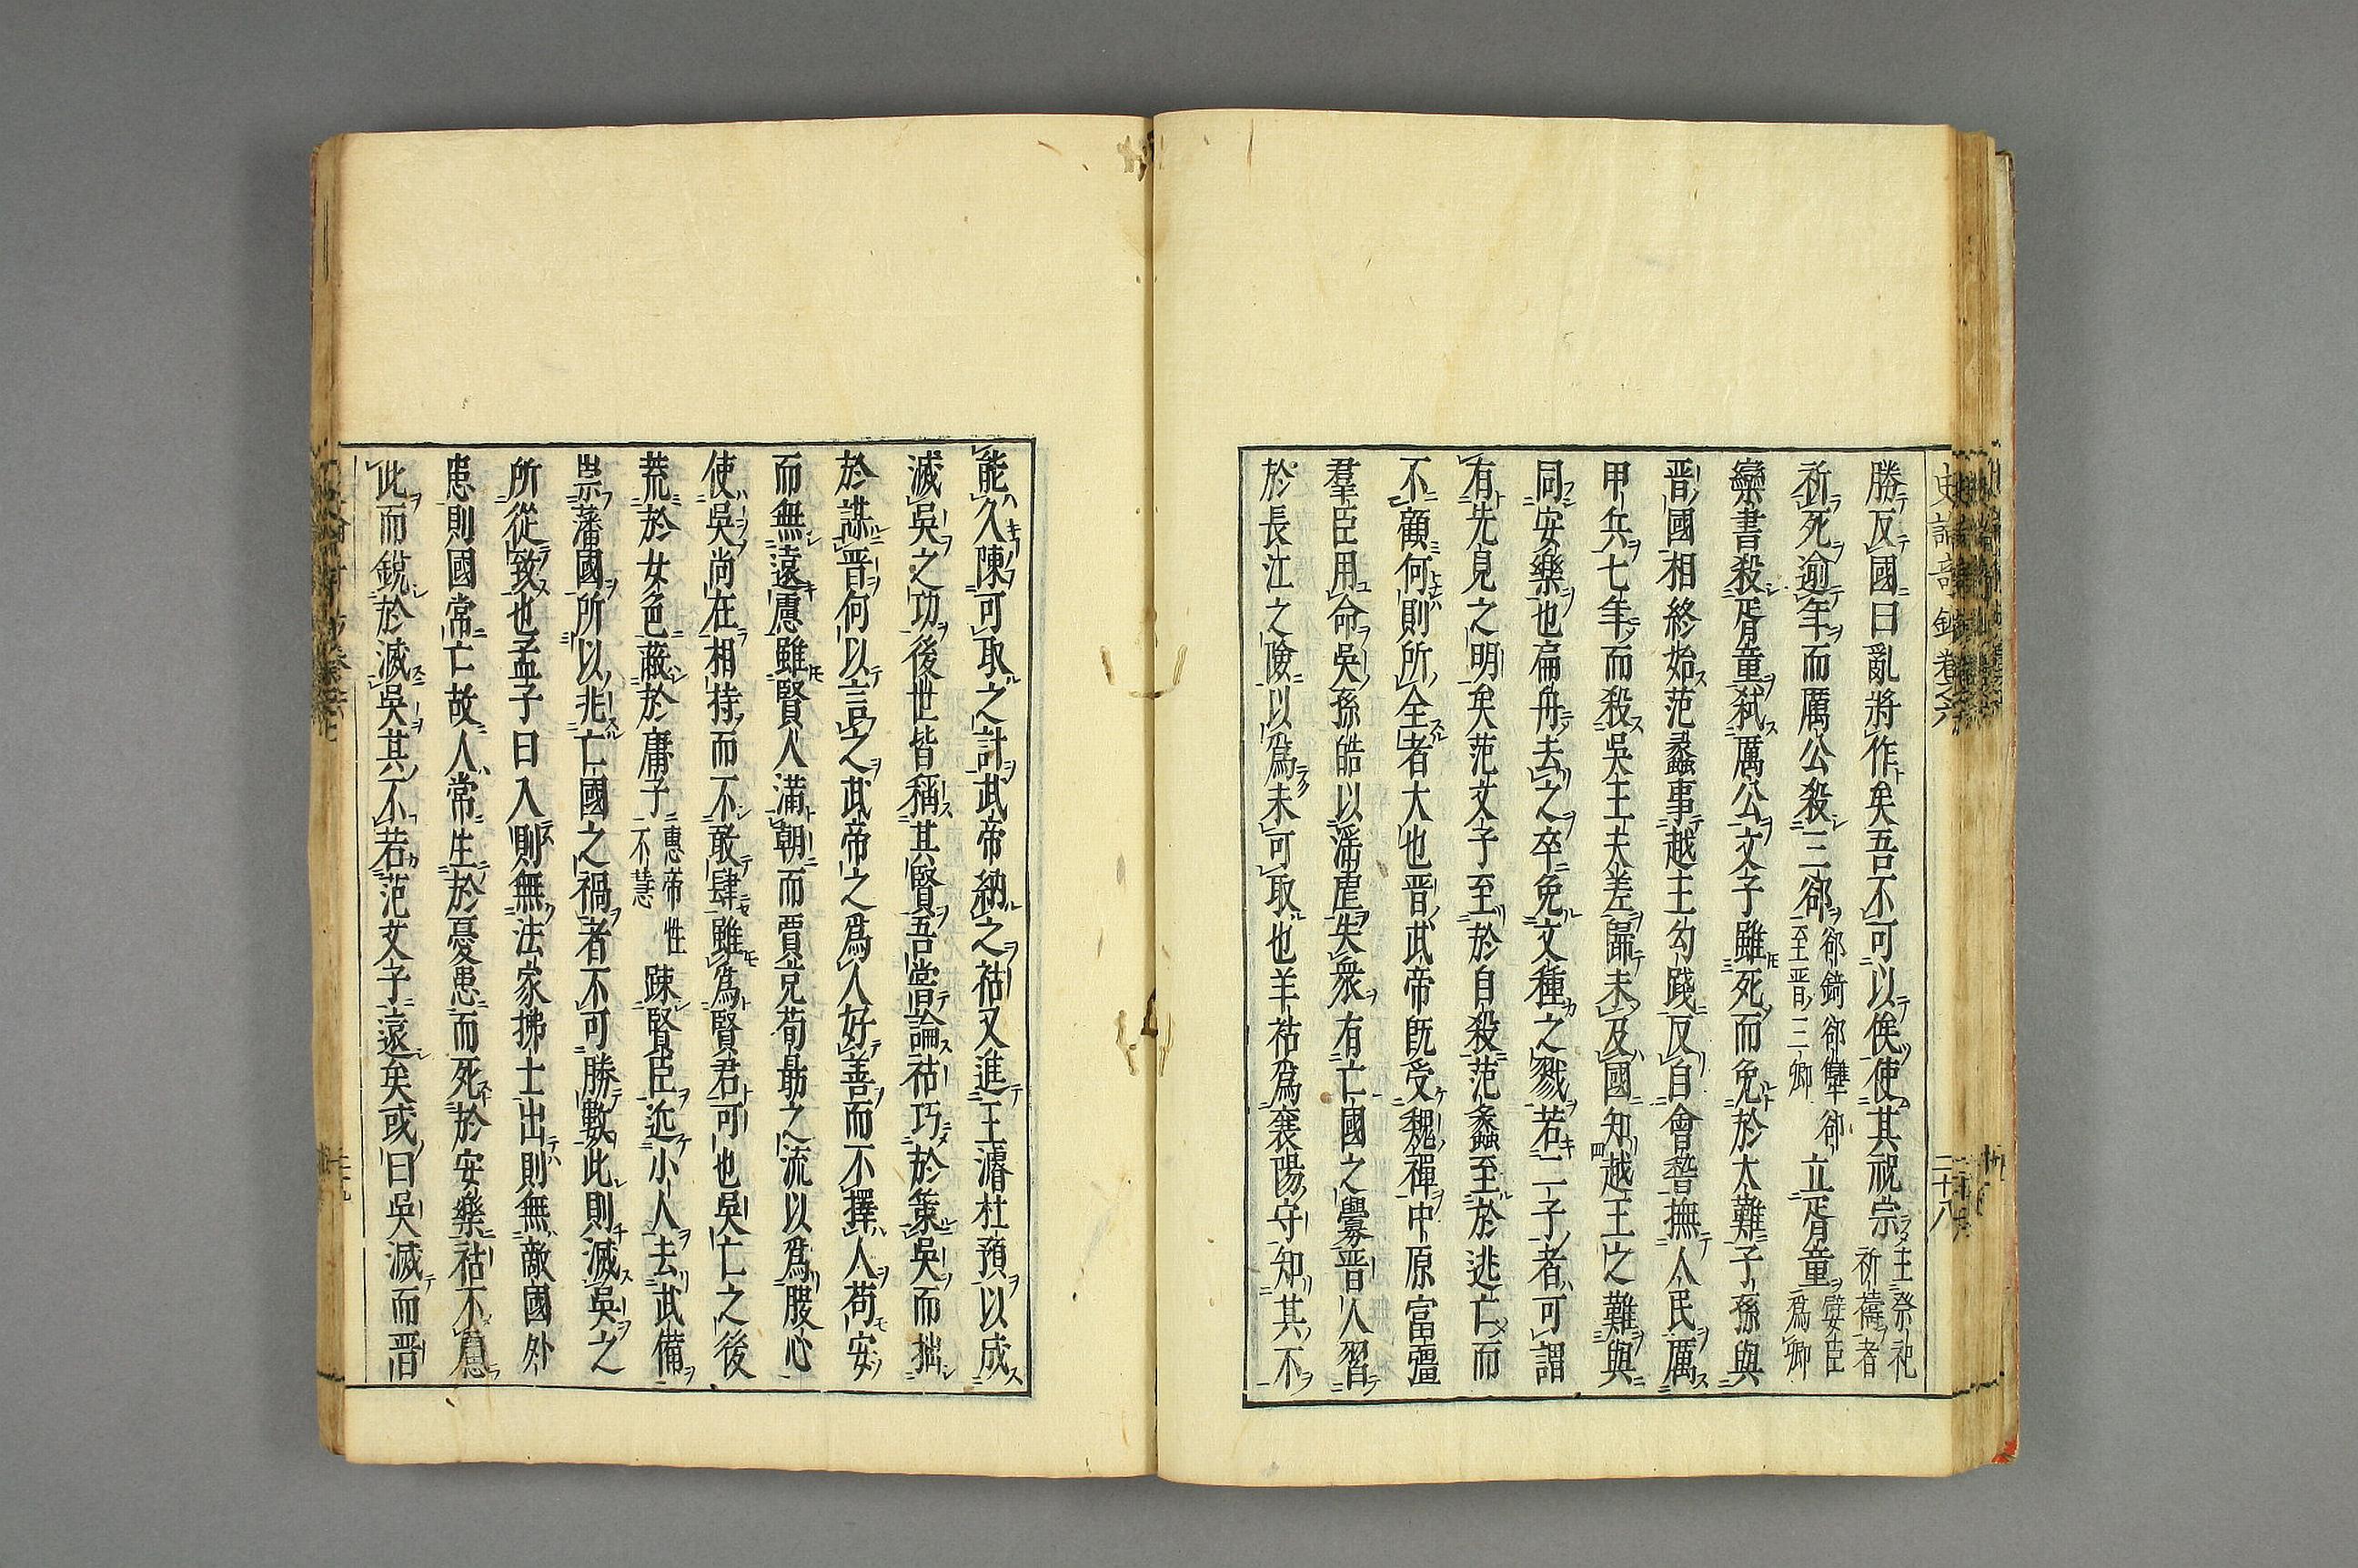 勝反國曰亂將作矣吾不可以俟使其祝宗主祭祀祈禱者
祈死逾年而厲公殺三郤郤錡郤犨郤至晋三卿立胥童嬖臣爲卿
欒書殺胥童弑厲公文子雖死而免於大難子孫與
晋國相終始范蠡事越王勾踐反自會暬撫人民厲
甲兵七年而殺吳王夫差歸未及國知越王之難與
同安樂也扁舟去之卒免文種之戮若二子者可謂
有先見之明矣范文子至於自殺范蠡至於逃亡而
不顧何則所全者大也晋武帝旣受魏禪中原富彊
羣臣用命吳孫皓以滛虐失衆有亡國之釁晋人習
於長江之險以爲未可取也羊祜爲襄陽守知其不
能久陳可取之計武帝納之祜又進王濬杜預以成
滅吳之功後世皆稱其賢吾嘗論祜巧於策吳而拙
於謀晋何以言之武帝之爲人好善而不擇人苟安
而無遠慮雖賢人滿朝而賈充荀勗之流以爲腹心
使吳尚在相持而不敢肆雖爲賢君可也吳亡之後
荒於女色蔽於庸子惠帝性不慧疎賢臣近小人去武備
崇藩國所以兆亡國之禍者不可勝數此則滅吳之
所從致也孟子曰入則無法家拂士出則無敵國外
患則國常亡故人常生於憂患而死於安樂祜不慮
此而銳於滅吳其不若范文子遠矣或曰吳滅而晋
二十八